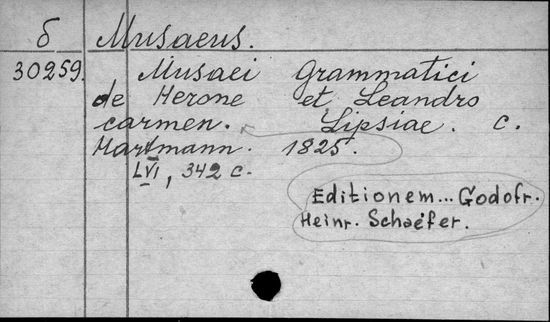 б Musaeus.
30259. Musaei Grammatici
de Herone et Leandro
carmen. Lipsiae. C.
Hartmann. 1825.
LVI, 342 c.
Editionem... Godofr.
Heinr. Schaefer.